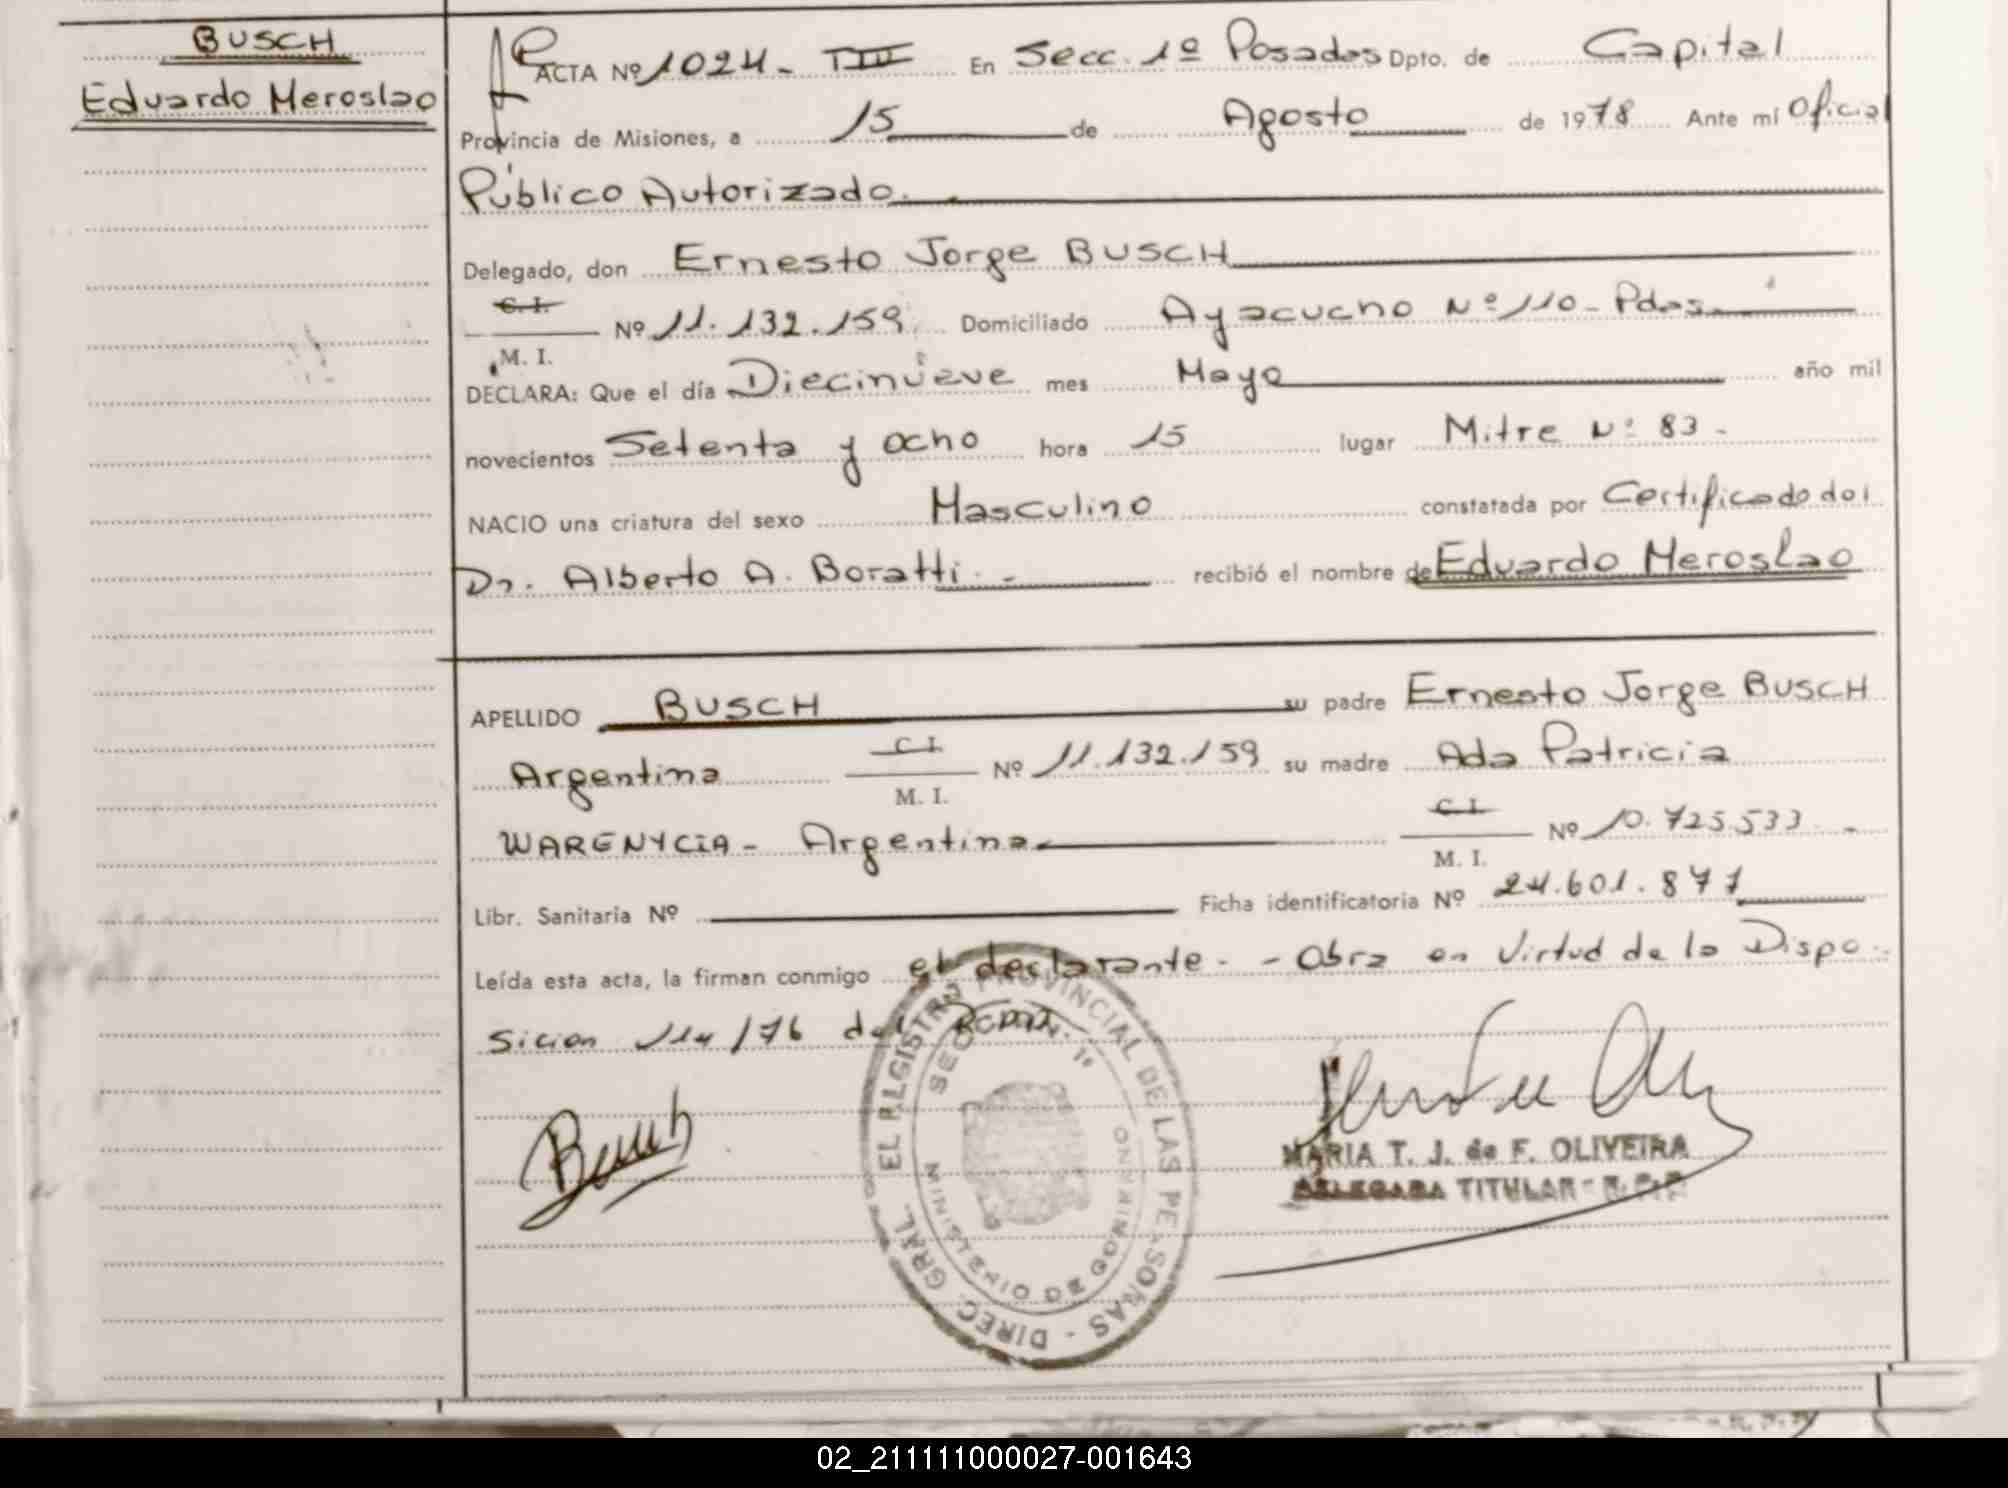 BUSCH
Eduardo Meroslao
ACTA Nº 1024 - TIII En Secc. 1º Posadas Dpto. de Capital
Provincia de Misiones, a 15 de Agosto de 1978 Ante mí Oficial
Público Autorizado.
Delegado, don Ernesto Jorge BUSCH
C. I.
M. I.
Nº 11.132.159 Domiciliado Ayacucho Nº 110 - Pdas.
DECLARA: Que el día Diecinueve mes Mayo año mil
novecientos Setenta y ocho hora 15 lugar Mitre Nº 83 -
NACIO una criatura del sexo Masculino constatada por Certificado del
Dr. Alberto A. Boratti - recibió el nombre de Eduardo Meroslao
APELLIDO BUSCH su padre Ernesto Jorge BUSCH
Argentina C. I. M. I. Nº 11.132.159 su madre Ada Patricia
WARENYCIA - Argentina C. I. M. I. Nº 10.725.533 -
Libr. Sanitaria Nº Ficha identificatoria Nº 24.601.871
Leída esta acta, la firman conmigo el declarante. - Obra en Virtud de la Dispo-
sicion 114/76 del
Busch
DIREC. GRAL. EL REGISTRO PROVINCIAL DE LAS PERSONAS -
SECC. 1º
MARIA T. J. de F. OLIVEIRA
DELEGADA TITULAR - R. P. P.
02_211111000027-001643